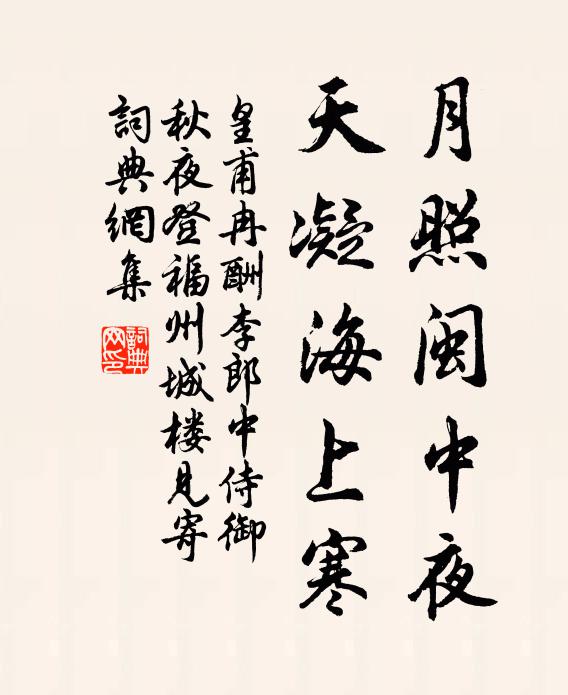 月照闽中夜
天凝海上寒
皇甫冉酬李郎中侍御
秋夜登福州城楼见寄
詞典網集
詞典
网印